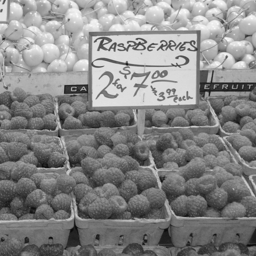 RASPBERRIES
2 for $7.00
$3.99 each
CA
EFRUIT